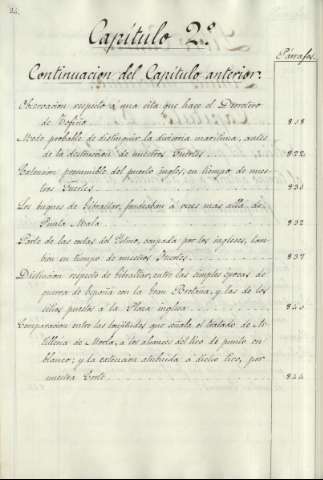 Capítulo 2º
Párrafos.
Continuacion del Capítulo anterior.
Observacion respecto a una cita que hace el Derrotero
de Tofiño 818
Modo probable de distinguir la divisoria marítima, antes
de la destruccion de nuestros Fuertes 822
Estension presumible del puerto ingles, en tiempo de nues-
tros Fuertes 830
Los buques de Gibraltar, fondeaban á veces mas allá de
Punta Mala 832
Parte de las costas del Istmo, ocupada por los ingleses, tam-
bien en tiempo de nuestros Fuertes 837
Distincion respecto de Gibraltar, entre las simples épocas de
guerra de España con la Gran Bretaña, y las de los
sitios puestos a la Plaza inglesa 840
Comparacion entre las longitudes que señala el tratado de
de Marla, a los alcances del tiro de punto en
blanco; y la estension atribuida a dicho tiro, por
nuestra Corte 844